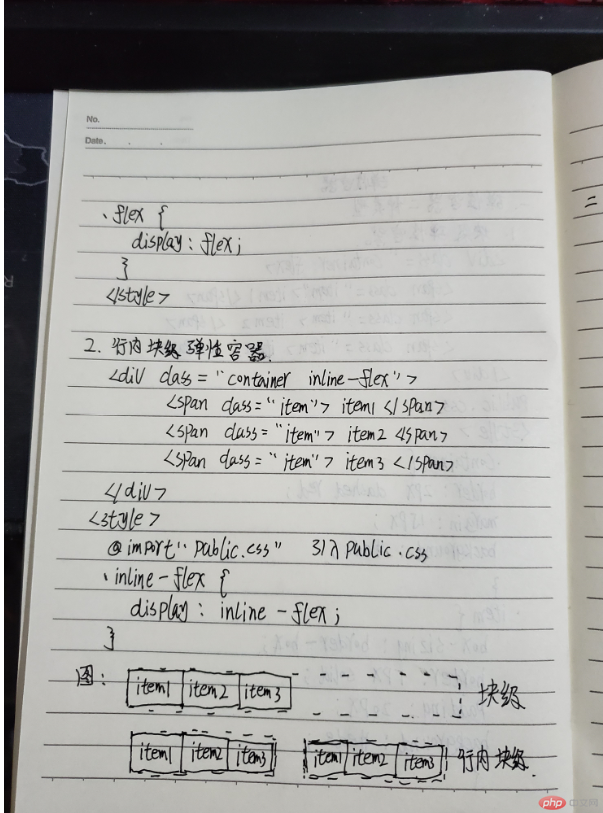 No.
Date.
.flex {
display: flex;
}
</style>
2. 行内块级弹性容器.
<div class="container inline-flex">
<span class="item"> item1 </span>
<span class="item"> item2 </span>
<span class="item"> item3 </span>
</div>
<style>
@import "public.css" 引入public.css
.inline-flex {
display: inline-flex;
}
图: item1 item2 item3 块级
item1 item2 item3 item1 item2 item3 行内块级.
二
php 中文网